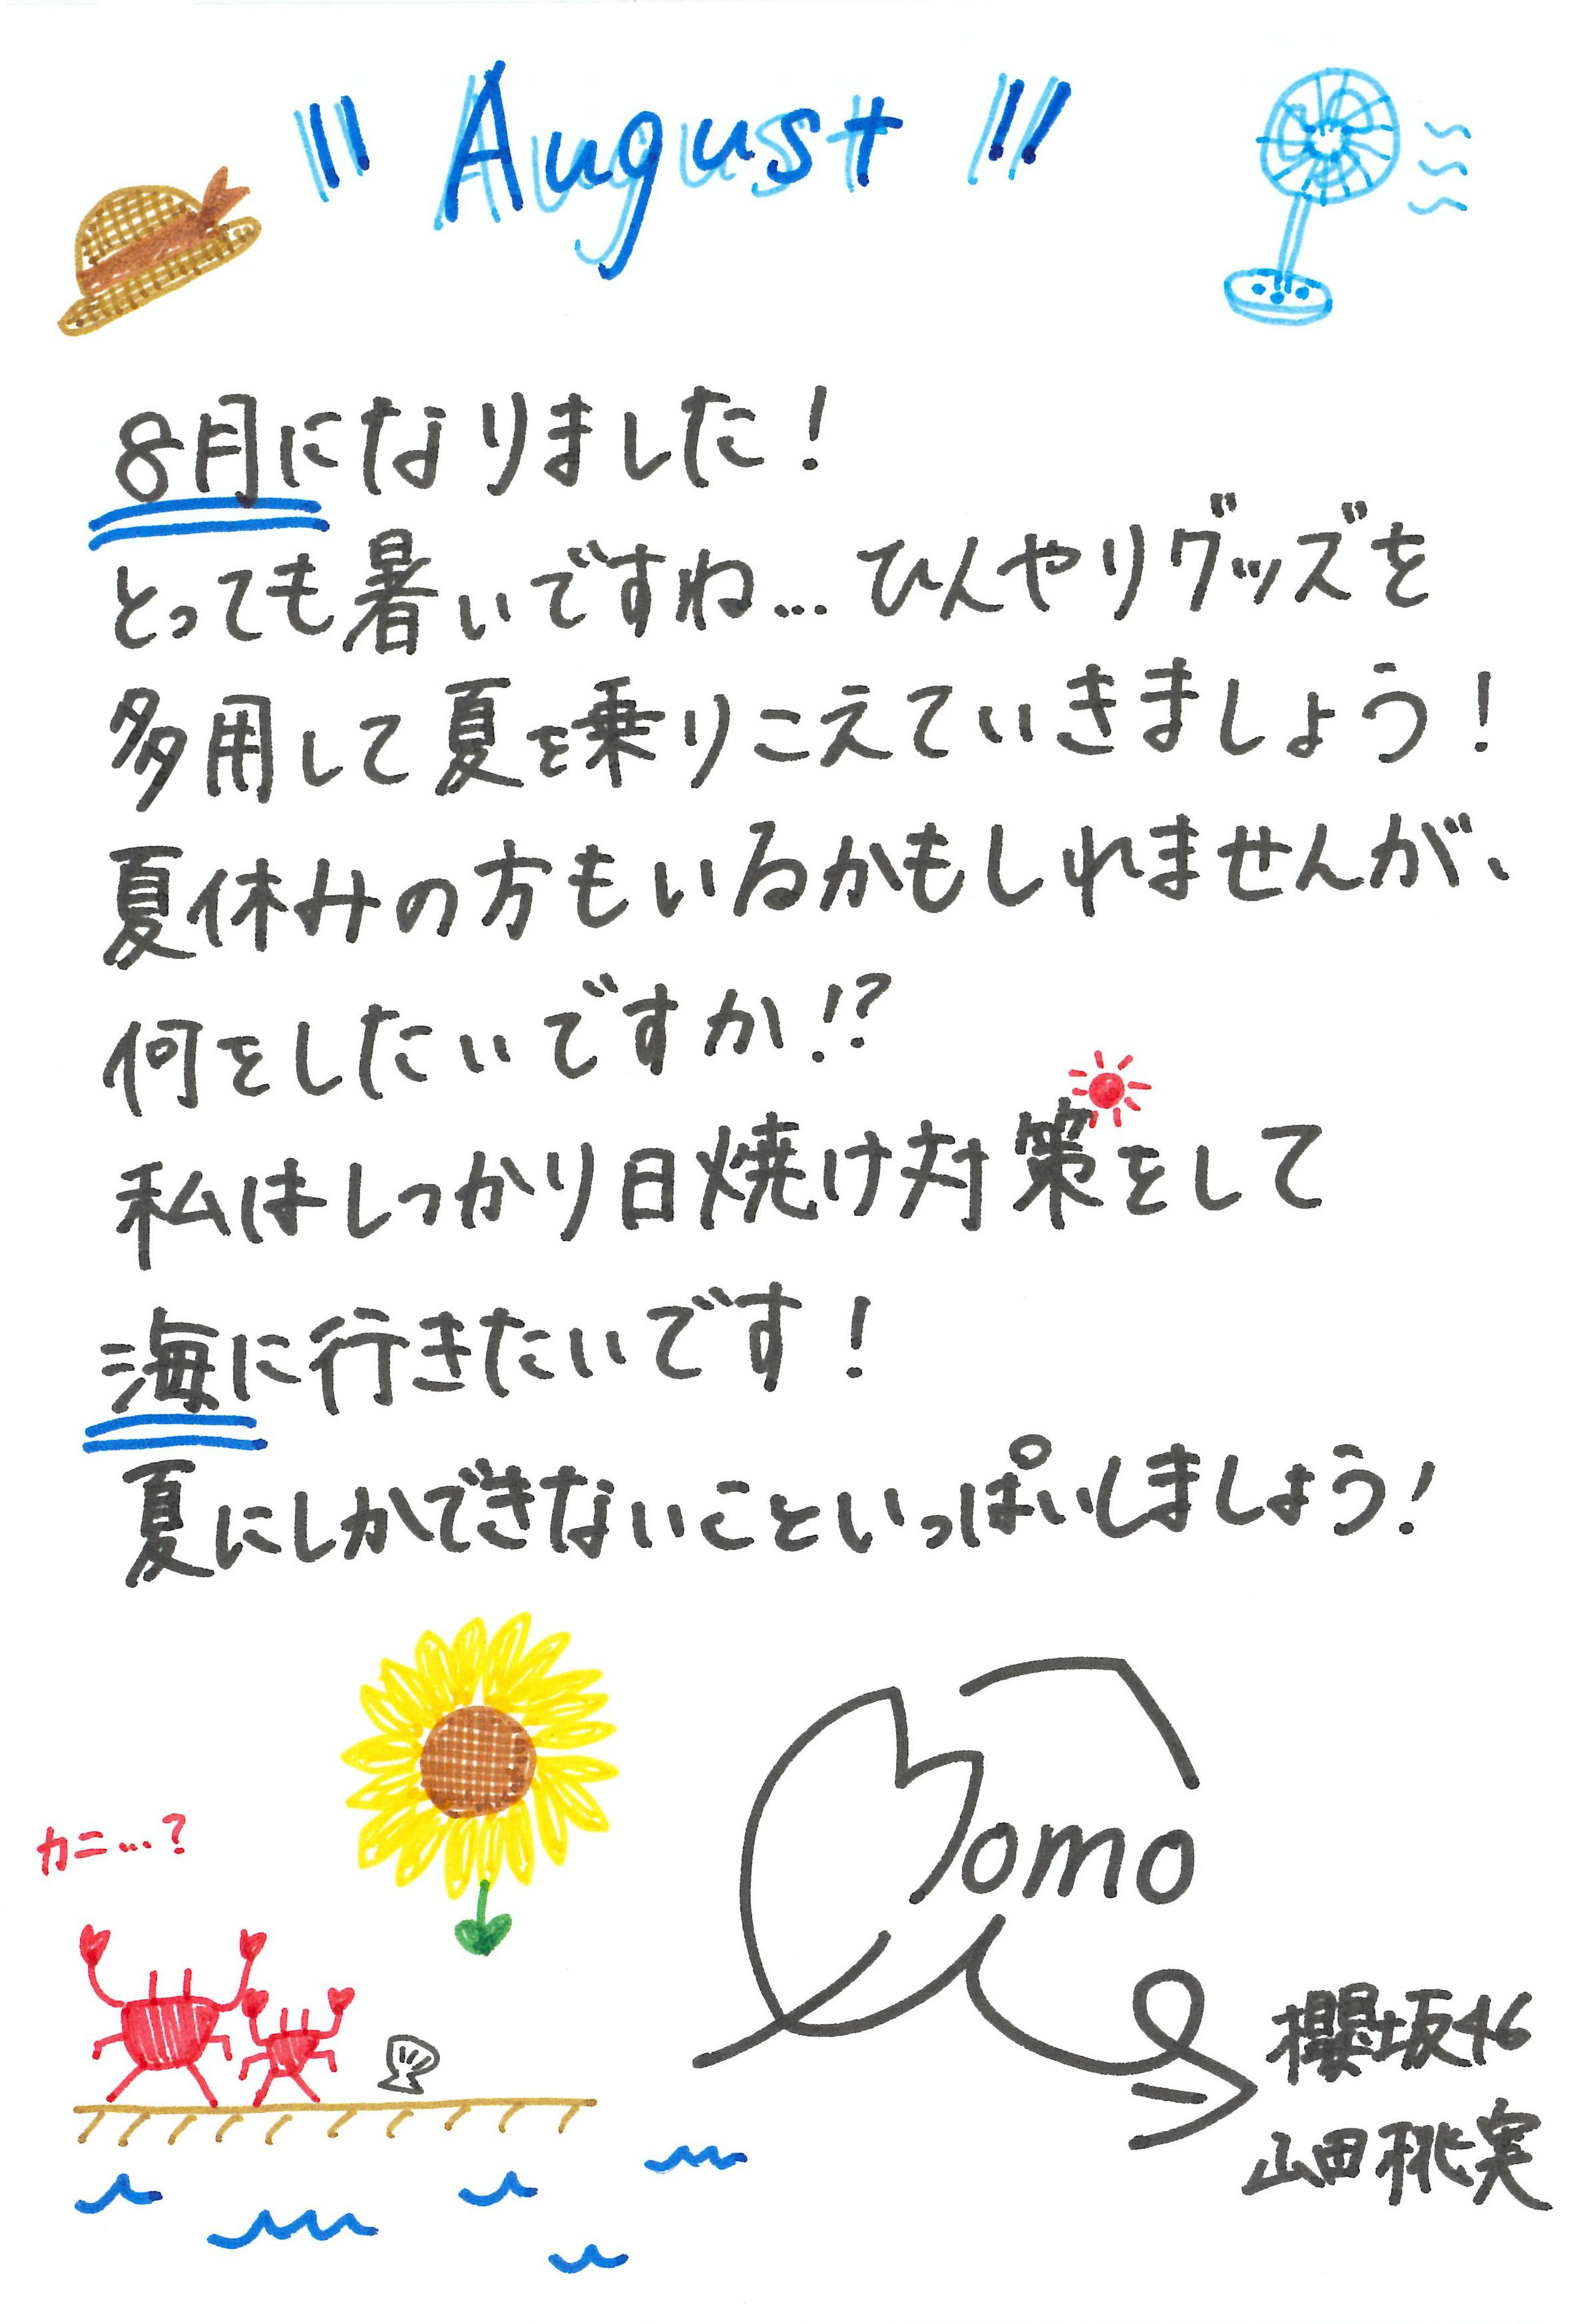 "August"
8月になりました!
とっても暑いですね... ひんやりグッズを
多用して夏を乗りこえていきましょう!
夏休みの方もいるかもしれませんが、
何をしたいですか!?
私はしっかり日焼け対策をして
海に行きたいです!
夏にしかできないこといっぱいしましょう!
カニ...?
Momo
櫻坂46
山田桃実